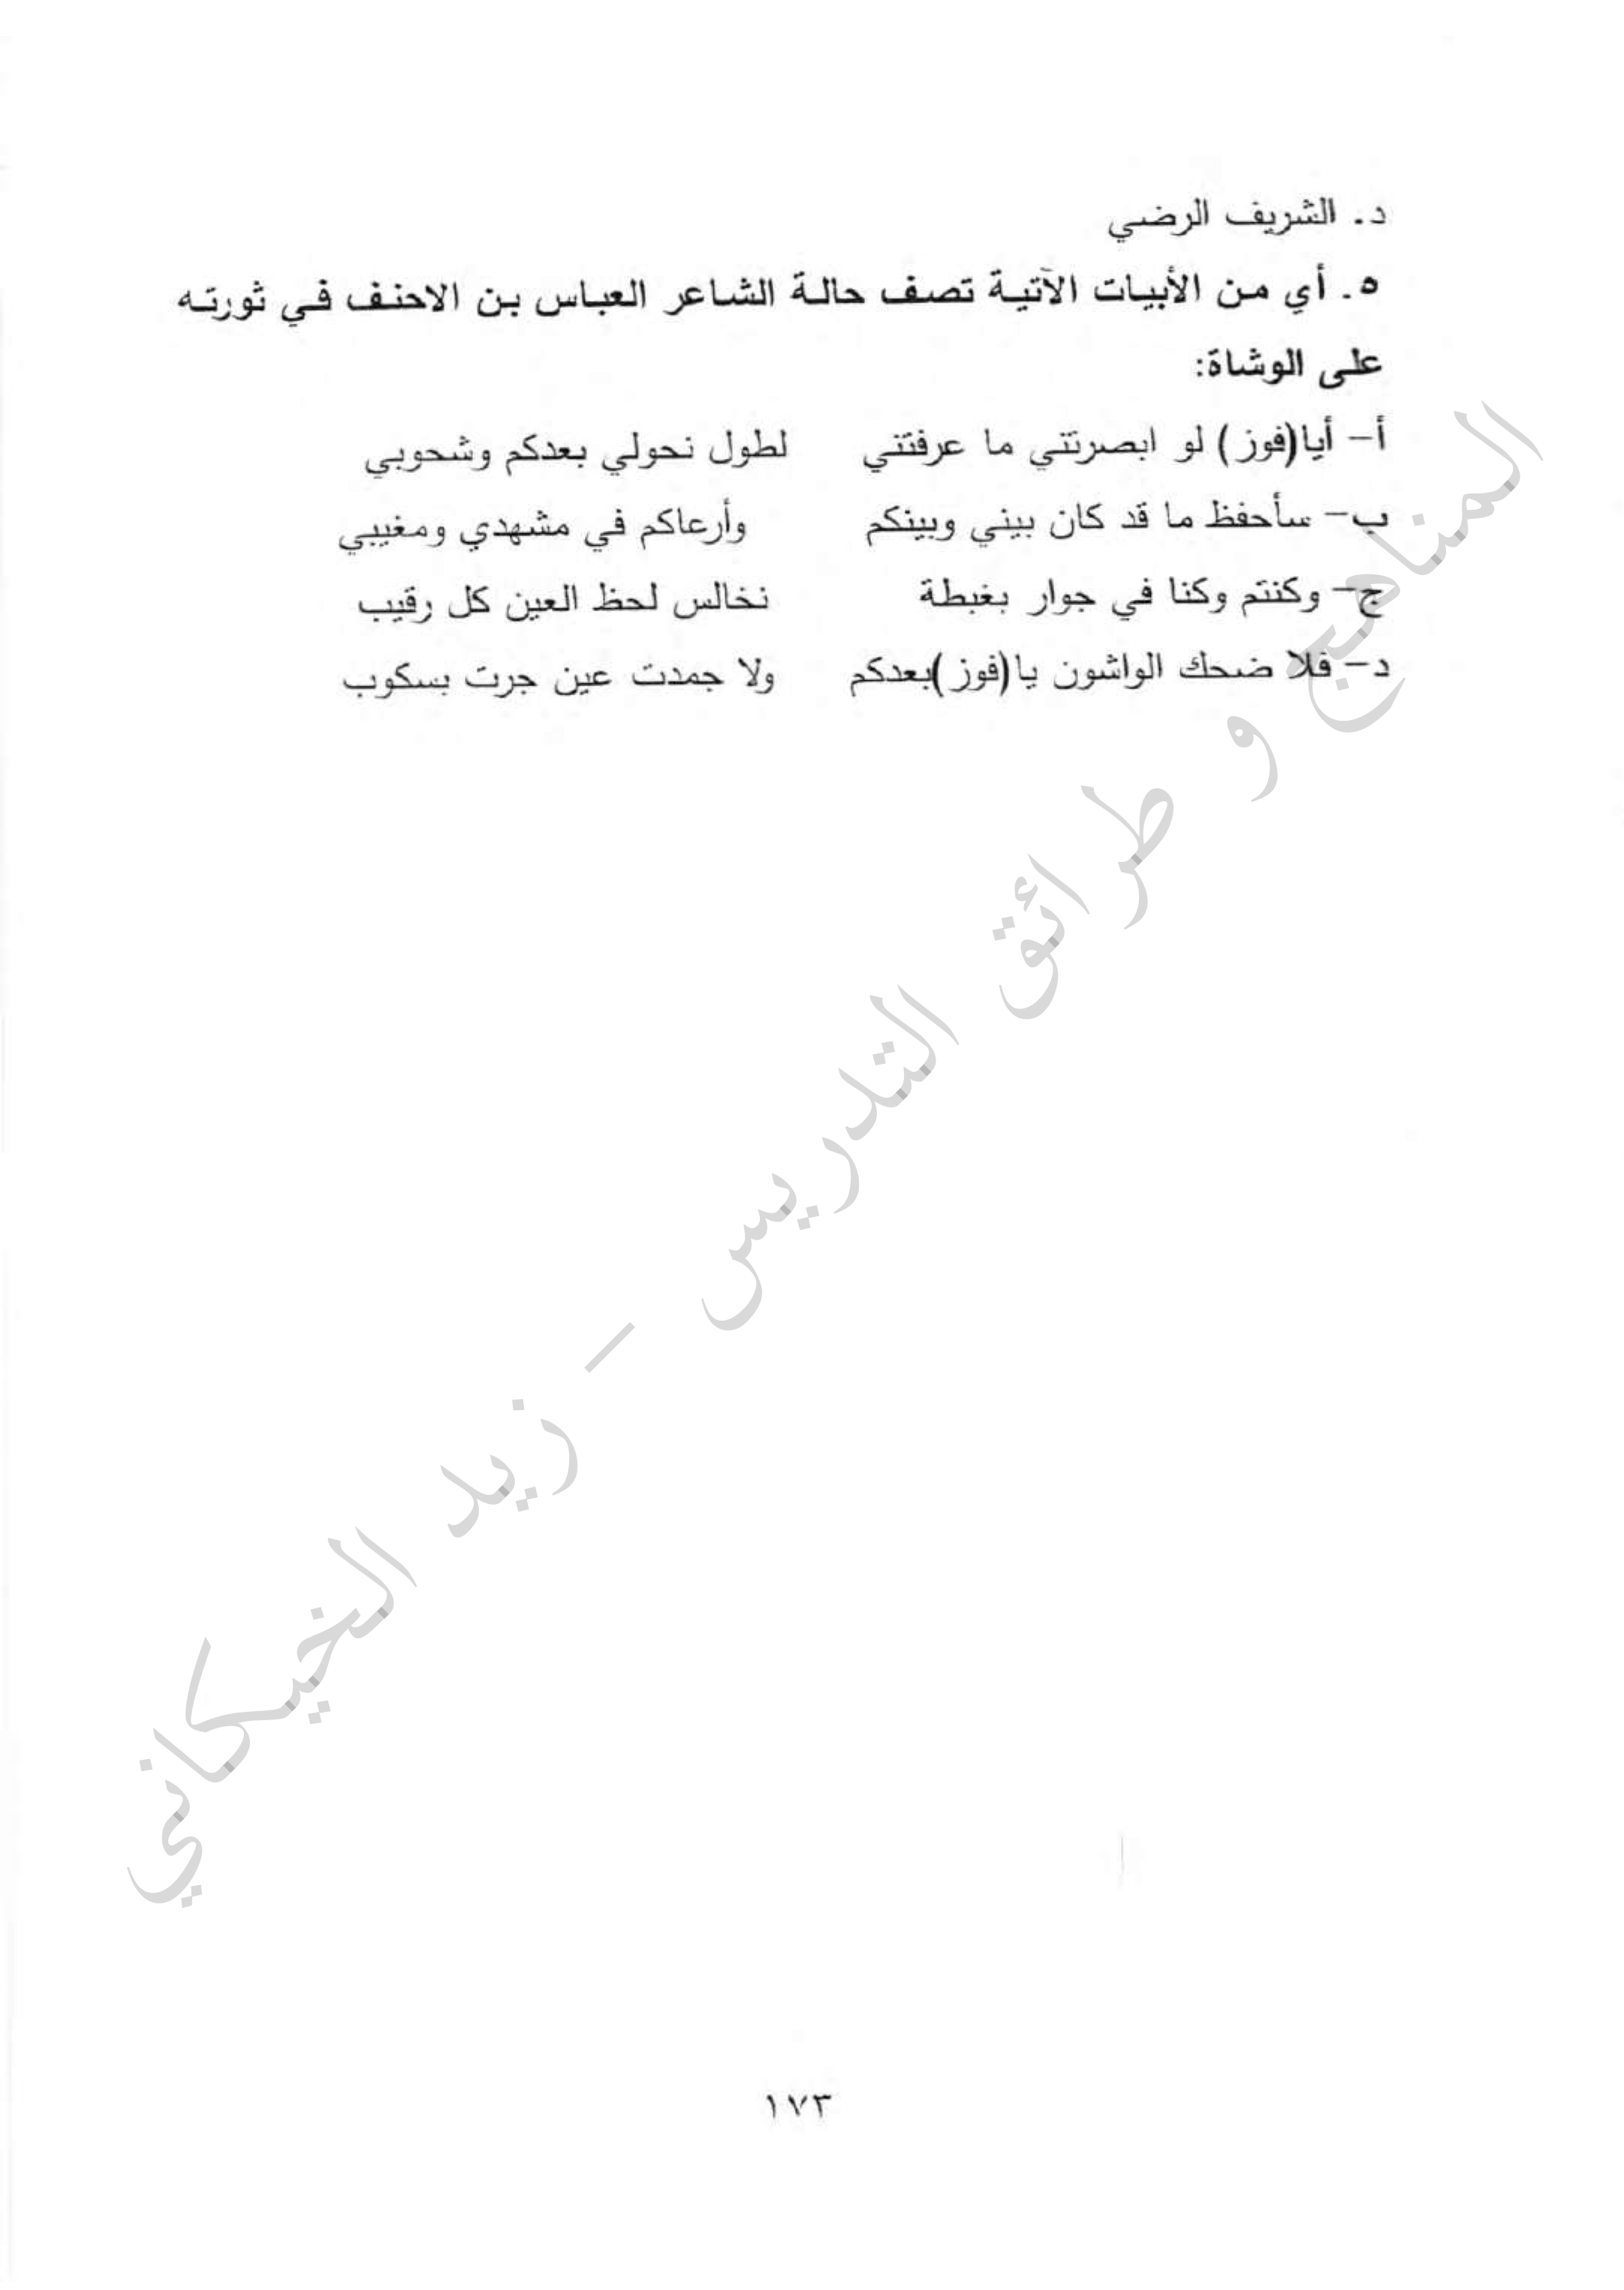 د. الشريف الرضي
٥. أي من الأبيات الآتية تصف حالة الشاعر العباس بن الاحنف في ثورته
على الوشاة:
أ- أيا(فوز) لو ابصرتتي ما عرفتتي لطول نحولي بعدكم وشحوبي
ب- سأحفظ ما قد كان بيني وبينكم وأرعاكم في مشهدي ومغيبي
ج- وكنتم وكنا في جوار بغبطة نخالس لحظ العين كل رقيب
د- فلا ضحك الواشون يا(فوز)بعدكم ولا جمدت عين جرت بسكوب
المناهج و طرائق التدريس - زيد الخيكاني
١٧٣